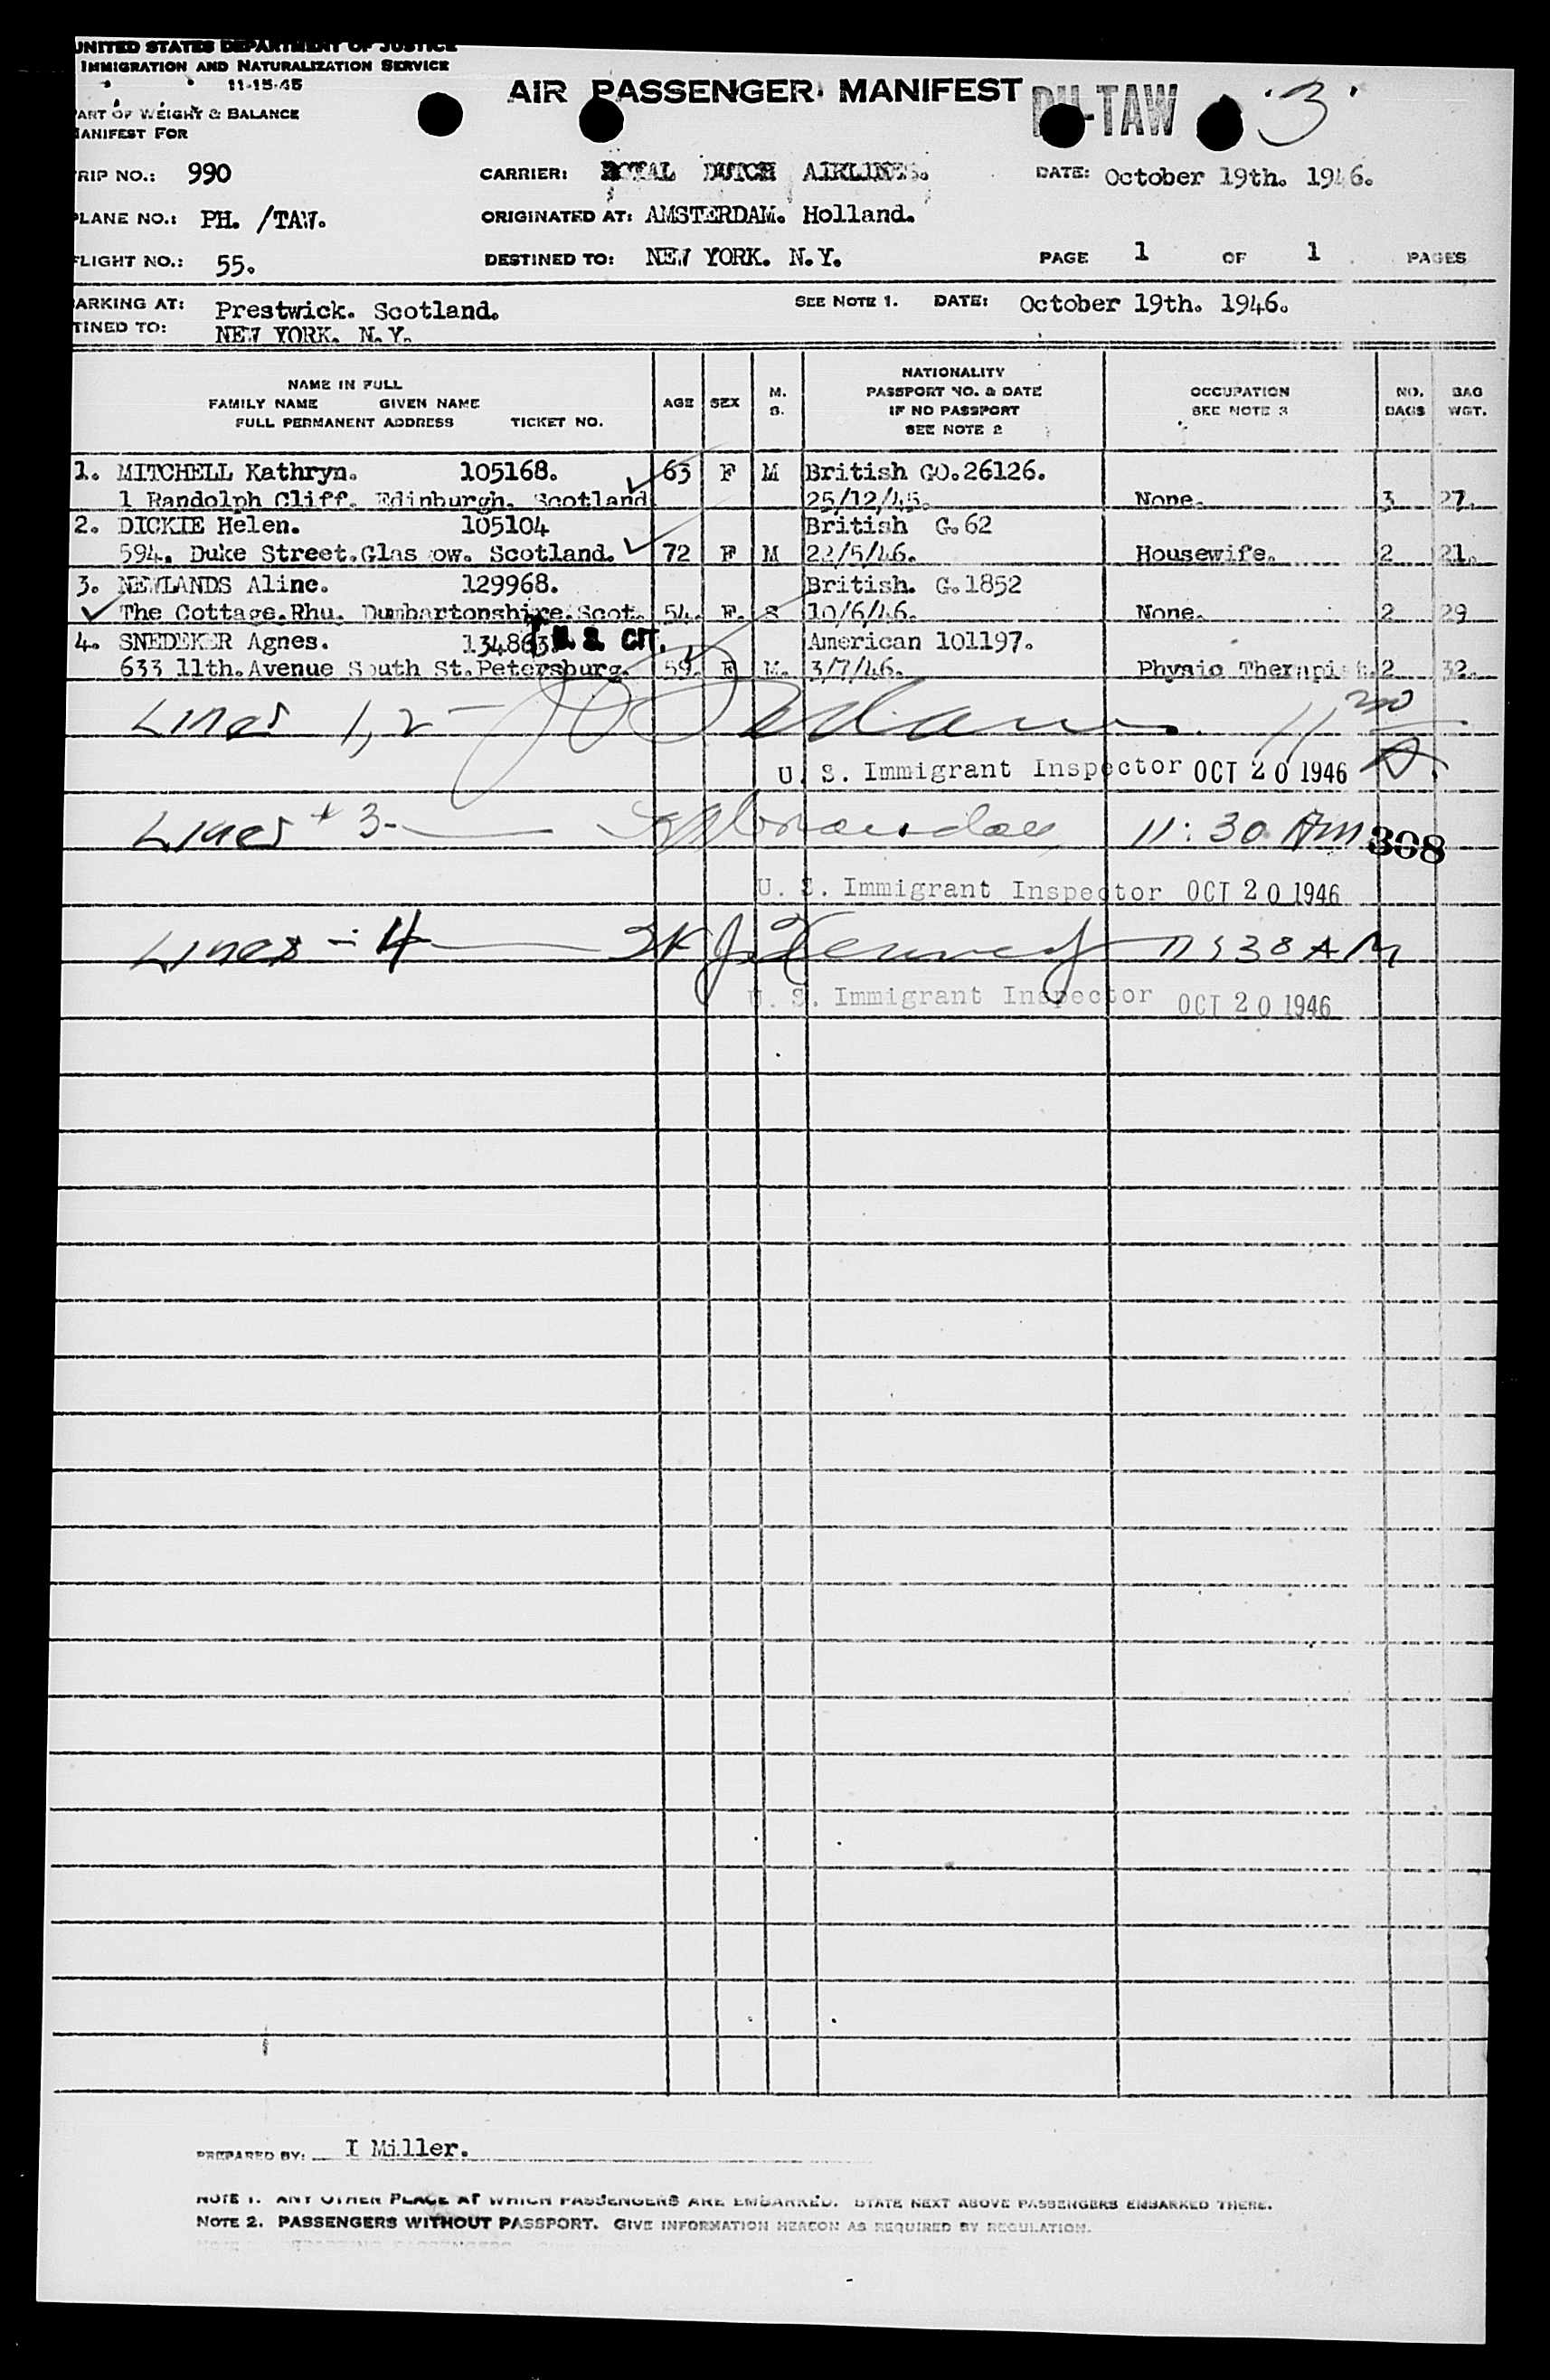 UNITED STATES DEPARTMENT OF JUSTICE
IMMIGRATION AND NATURALIZATION SERVICE
11-15-45
ART OF WEIGHT & BALANCE
ANIFEST FOR
AIR PASSENGER MANIFEST
-TAW 3
RIP NO.: 990 CARRIER: ROYAL DUTCH AIRLINES. DATE: October 19th. 1946.
PLANE NO.: PH. /TAW. ORIGINATED AT: AMSTERDAM. Holland.
FLIGHT NO.: 55. DESTINED TO: NEW YORK. N.Y. PAGE 1 OF 1 PAGES
ARKING AT: Prestwick. Scotland. SEE NOTE 1. DATE: October 19th. 1946.
TINED TO: NEW YORK. N.Y.
NAME IN FULL
FAMILY NAME GIVEN NAME
FULL PERMANENT ADDRESS TICKET NO.
AGE SEX M. S.
NATIONALITY
PASSPORT NO. & DATE
IF NO PASSPORT
SEE NOTE 2
OCCUPATION
SEE NOTE 3
NO. BAGS
BAG WGT.
1. MITCHELL Kathryn. 105168. 63 F M British GO.26126.
1 Randolph Cliff. Edinburgh. Scotland 25/12/45. None. 3 27.
2. DICKIE Helen. 105104 British G.62
594. Duke Street.Glas ow. Scotland. 72 F M 22/5/46. Housewife. 2 21.
3. NEWLANDS Aline. 129968. British. G.1852
The Cottage.Rhu. Dumbartonshire.Scot. 54. F. S 10/6/46. None. 2 29
4. SNEDEKER Agnes. 134863 U. S. CIT. American 101197.
633 11th.Avenue South St.Petersburg. 59. F M. 3/7/46. Physio Therapist. 2 32.
Lines 1, 2 -
U. S. Immigrant Inspector OCT 20 1946
Lines + 3- 11:30 AM 308
U. S. Immigrant Inspector OCT 20 1946
Lines - 4 J. Kennedy 11:38 AM
U. S. Immigrant Inspector OCT 20 1946
PREPARED BY: I Miller.
NOTE 1. ANY OTHER PLACE AT WHICH PASSENGERS ARE EMBARKED. STATE NEXT ABOVE PASSENGERS EMBARKED THERE.
NOTE 2. PASSENGERS WITHOUT PASSPORT. GIVE INFORMATION HEREON AS REQUIRED BY REGULATION.